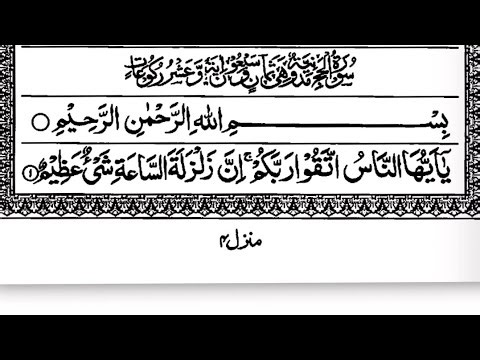 سُوْرَةُ الْحَجِّ مَدَنِيَّةٌ وَّهِيَ ثَمَانٍ وَّسَبْعُوْنَ اٰيَةً وَّعَشْرُ رُكُوْعَاتٍ
بِسْمِ اللهِ الرَّحْمٰنِ الرَّحِيْمِ ○
يٰۤاَيُّهَا النَّاسُ اتَّقُوْا رَبَّكُمْ ۚ اِنَّ زَلْزَلَةَ السَّاعَةِ شَىْءٌ عَظِيْمٌ ۝۱
منزل ۴